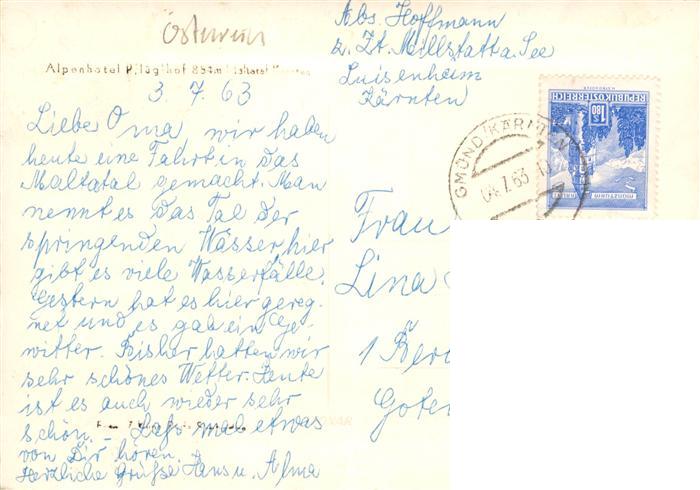 Österreich
Alpenhotel Pflüglhof 854m Maltatal Kärnten
3.7.63
Liebe Oma, wir haben
heute eine Fahrt in das
Maltatal gemacht. Man
nennt es das Tal der
springenden Wasser, hier
gibt es viele Wasserfälle.
Gestern hat es hier gereg-
net und es gab ein Ge-
witter. Bisher hatten wir
sehr schönes Wetter. Heute
ist es auch wieder sehr
schön. – Laß mal etwas
von Dir hören.
Herzliche Grüße Hans u. Alma
Abs. Hoffmann
z. Zt. Millstatt a. See
Luisenheim
Kärnten
REPUBLIK ÖSTERREICH
S 1.80
MÜNZTURM
GMÜND KÄRNTEN
04.7.63
Frau
Lina
1 Ber
Goten